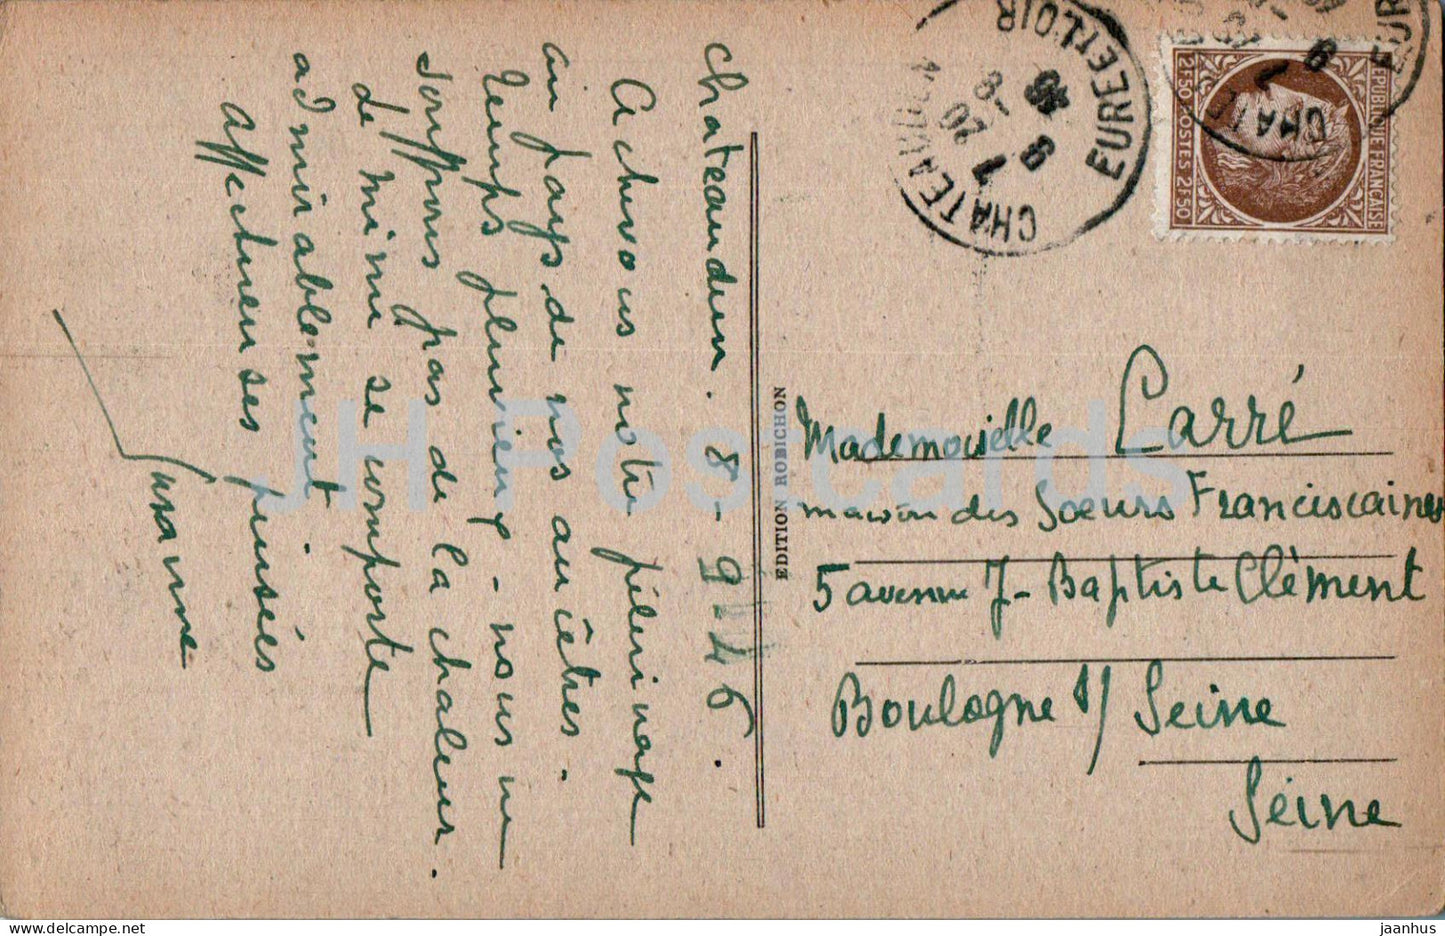 Chateaudun. 8-9 46.
Achevons notre pélerinage
au pays de nos ancêtres.
Temps pluvieux - nous ne
souffrons pas de la chaleur.
de mimi se comporte
admirablement.
Affectueuses pensées
Suzanne
EDITION ROBICHON
CHATEAUDUN
EURE ET LOIR
20
8
9
46
REPUBLIQUE FRANÇAISE
2F50 POSTES 2F50
Mademoiselle Carré
maison des Soeurs Franciscaines
5 avenue J-Baptiste Clément
Boulogne s/ Seine
Seine
JH Postcards
jaanhus — www.delcampe.net